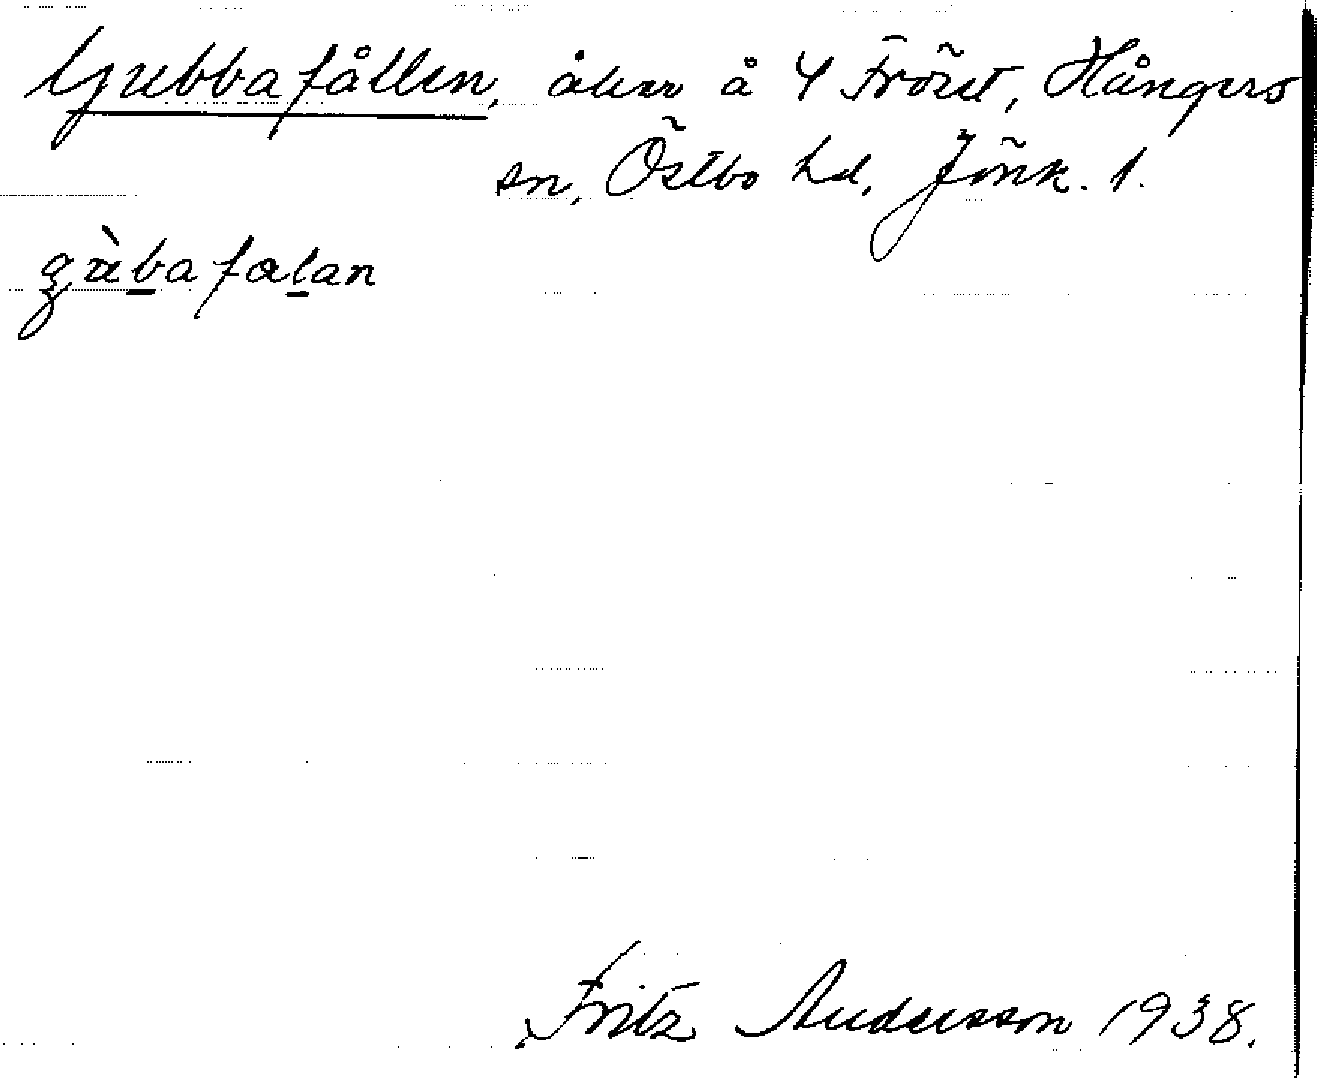 Gubbafållen, åker å 4 Fröset, Hångers
sn, Östbo hd, Jönk. l.
gùbafalan
Fritz Andersson 1938.